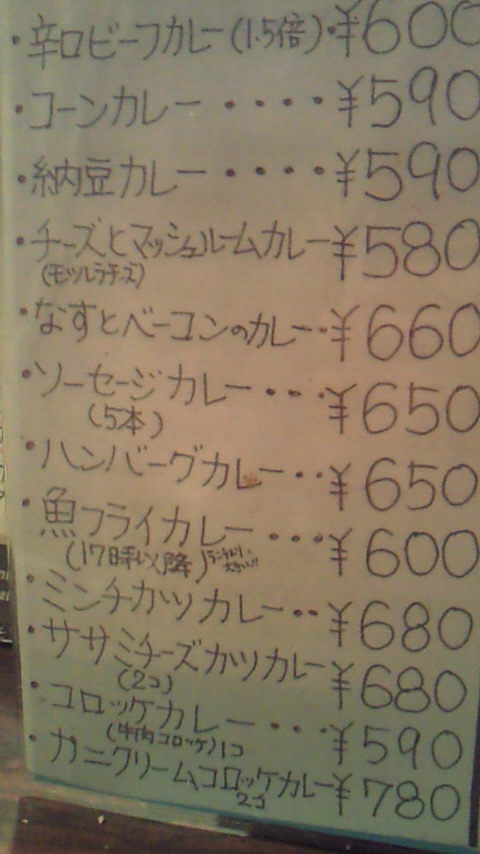 ・辛口ビーフカレー(1.5倍)・¥600
・コーンカレー・・・・¥590
・納豆カレー・・・・¥590
・チーズとマッシュルームカレー¥580
(モツルラチーズ)
・なすとベーコンのカレー・¥660
・ソーセージカレー・・・¥650
(5本)
・ハンバーグカレー・・¥650
・魚フライカレー・・・¥600
(17時以降)
・ミンチカツカレー・・¥680
・ササミチーズカツカレー¥680
(2コ)
・コロッケカレー・・・¥590
(牛肉コロッケ)1コ
・カニクリームコロッケカレー¥780
2コ